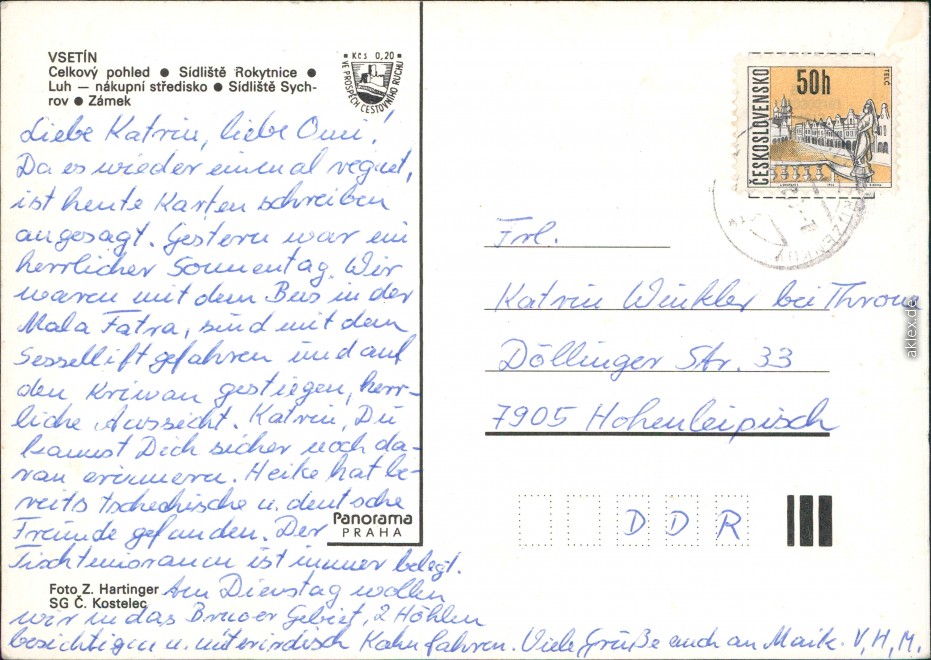 VSETÍN
Celkový pohled ● Sídliště Rokytnice ●
Luh — nákupní středisko ● Sídliště Sych-
rov ● Zámek
Kčs 0,20
VE PROSPĚCH CESTOVNÍHO RUCHU
Liebe Katrin, liebe Omi!
Da es wieder einmal regnet,
ist heute Karten schreiben
angesagt. Gestern war ein
herrlicher Sonnentag. Wir
waren mit dem Bus in der
Mala Fatra, sind mit dem
Sessellift gefahren und auf
den Kriwan gestiegen, herr-
liche Aussicht. Katrin, Du
kannst Dich sicher noch da-
ran erinnern. Heike hat be-
reits tschechische u. deutsche
Freunde gefunden. Der
Tischtennisraum ist immer belegt.
Am Dienstag wollen
wir in das Gebiet, 2 Höhlen
besichtigen u. unterirdisch Kahn fahren. Viele Grüße auch an Maik. V, H, M.
Panorama
PRAHA
Foto Z. Hartinger
SG Č. Kostelec
ČESKOSLOVENSKO
50h
TELČ
Frl.
Katrin Winkler bei Throm
Döllinger Str. 33
7905 Hohenleipisch
D D R
aklex.de